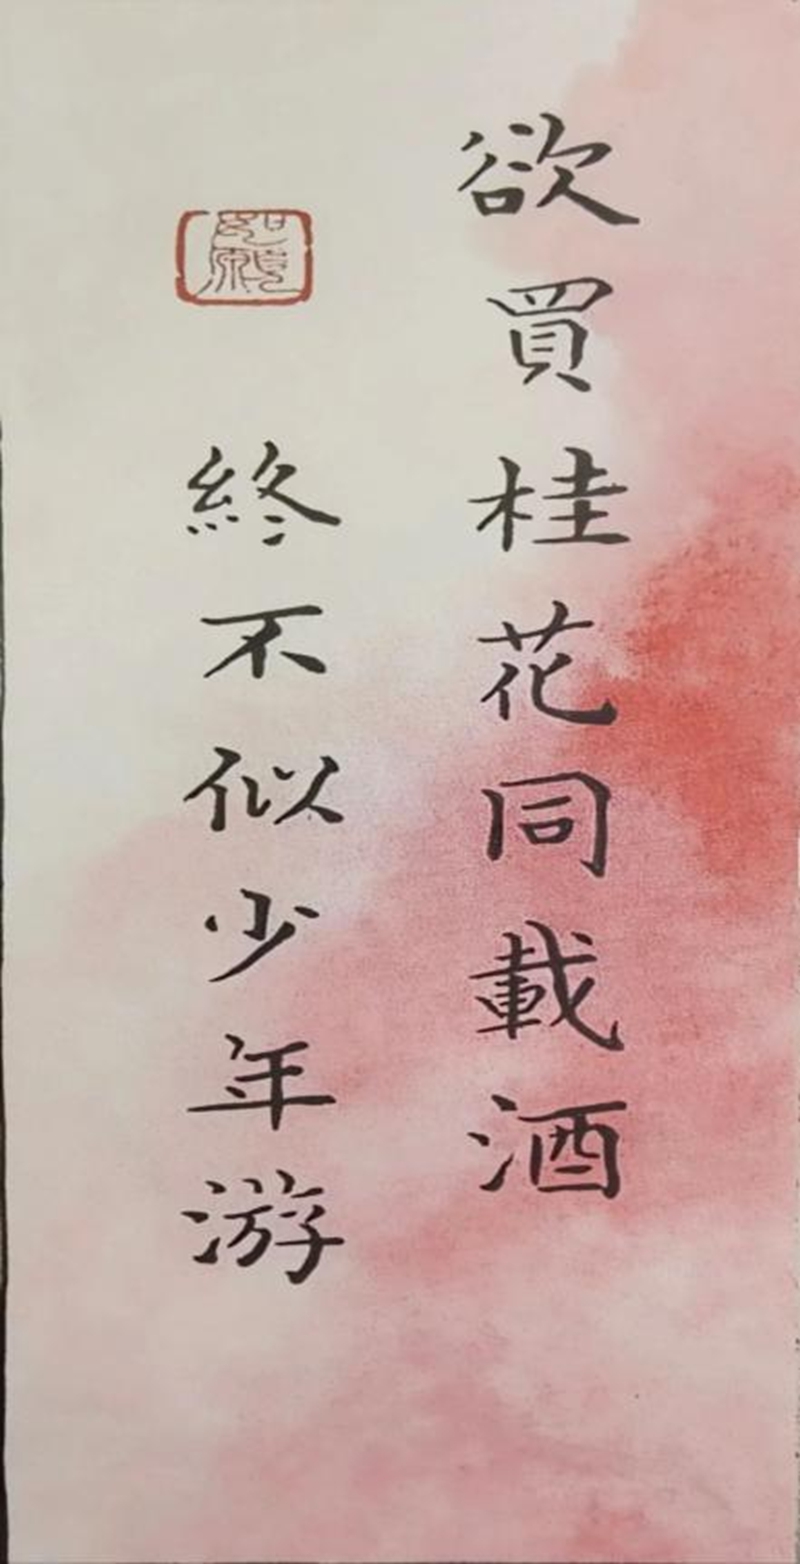 欲買桂花同載酒
終不似少年游